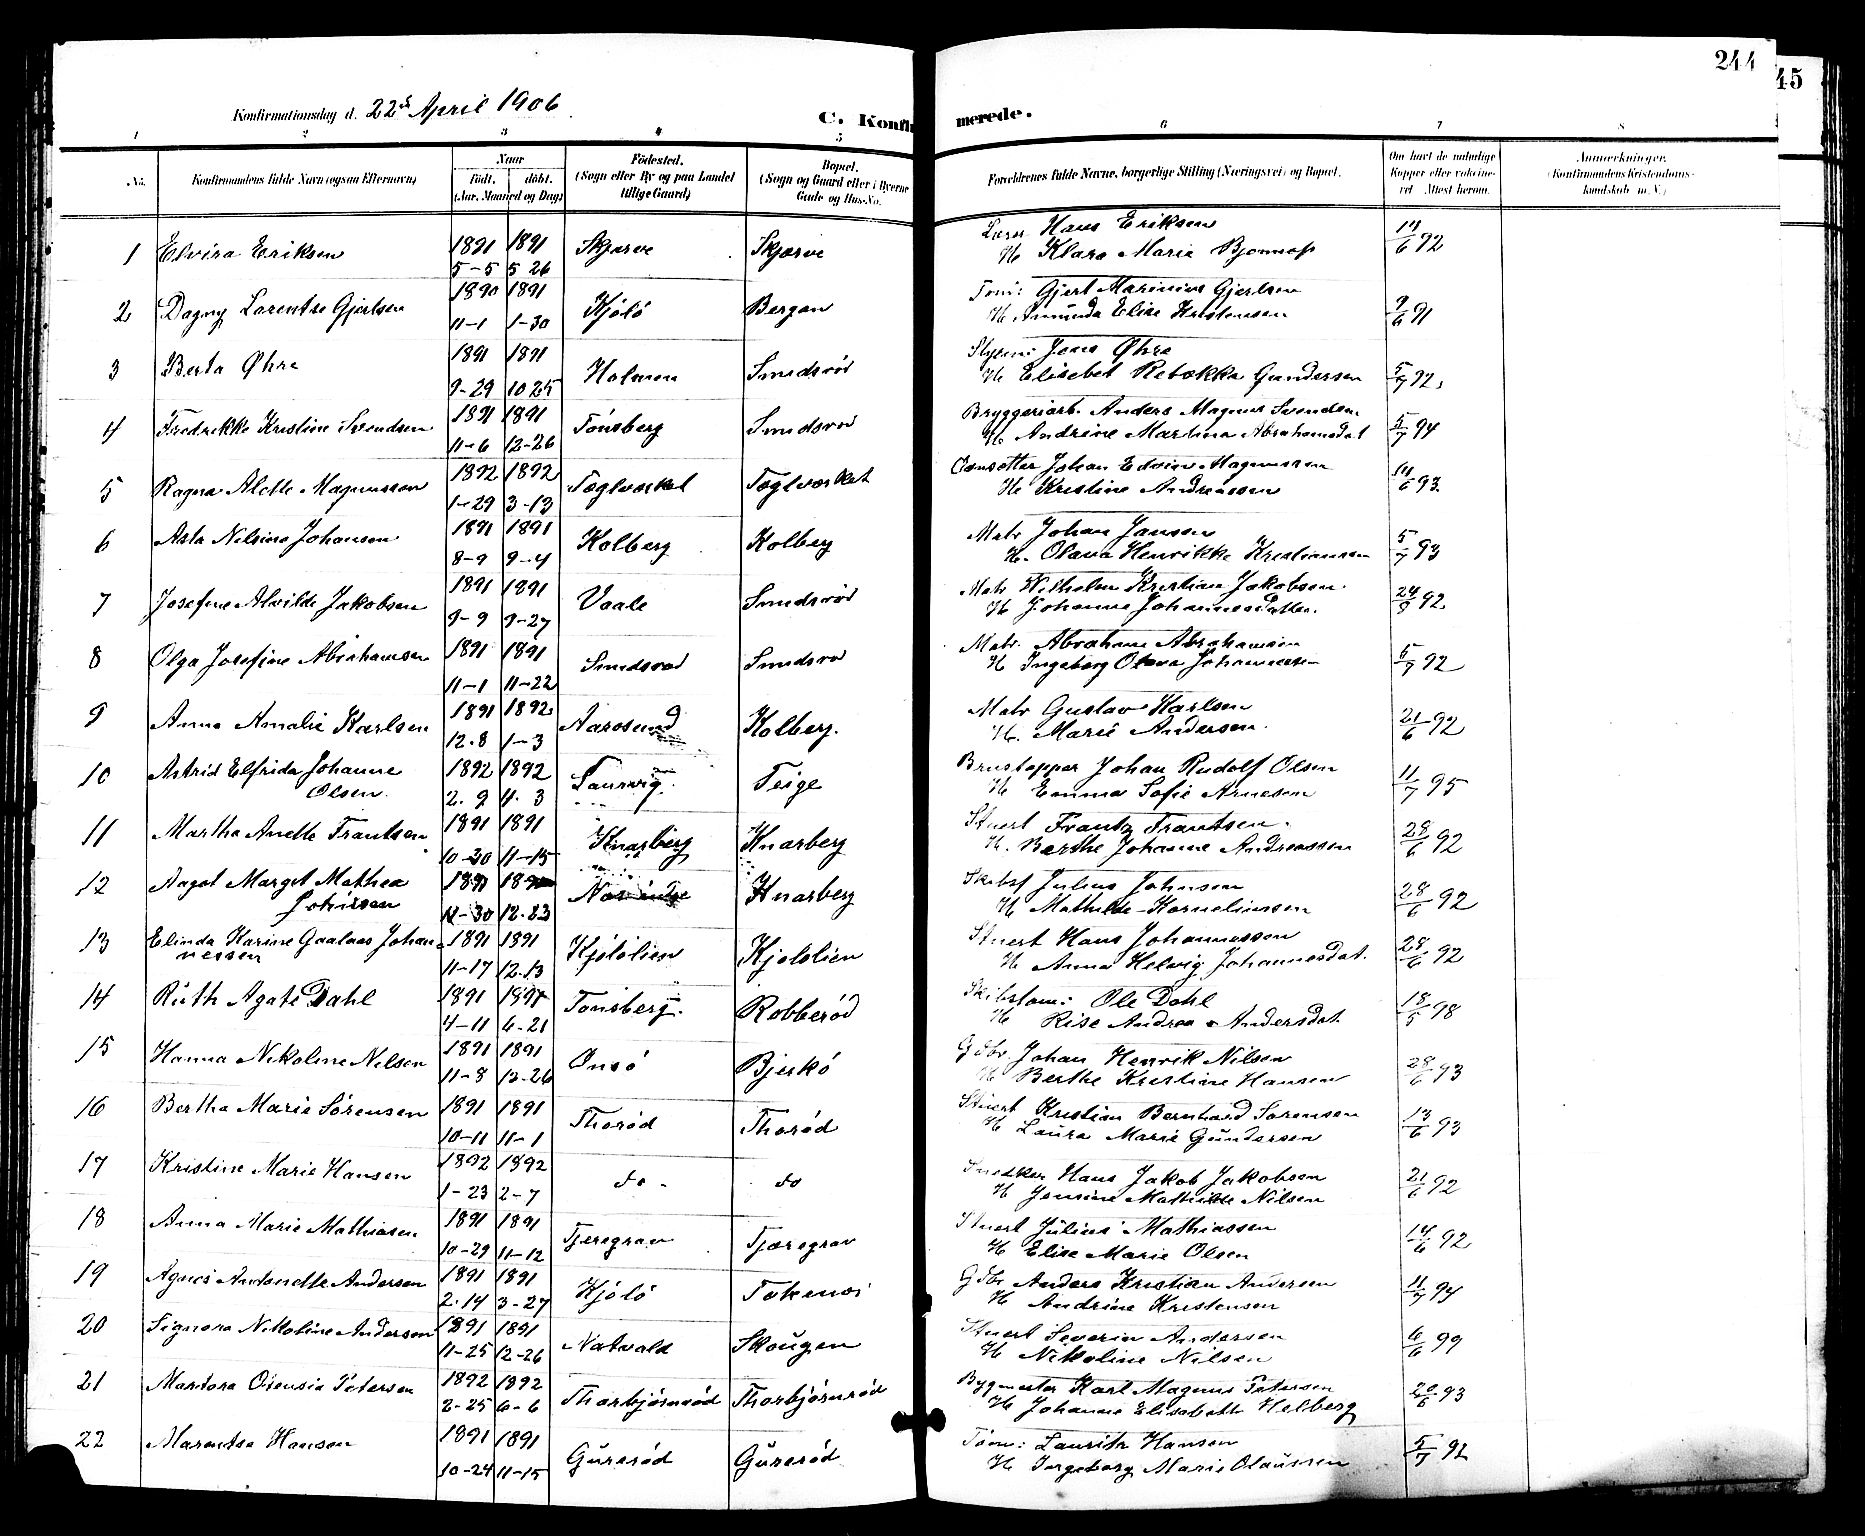 244
45
Konfirmationsdag d. 22de April 1906
C. Konfir merede.
1 2 3 4 5 6 7 8
No. Konfirmandens fulde Navn (ogsaa Efternavn) Naar Födt. döbt. (Aar, Maaned og Dag) Födested. (Sogn eller By og paa Landet tillige Gaard) Bopæl. (Sogn og Gaard eller i Byerne Gade og Hus-No. Forældrenes fulde Navne, borgerlige Stilling (Næringsvei) og Bopæl. Om havt de naturlige Kopper eller vaccineret. Attest herom. Anmærkninger. (Konfirmandens Kristendomskundskab m. V.)
1 Elvira Eriksen 1891 1891 Skjærve Skjærve Hans Eriksen 14/6 92
5-5 5 26 H Klara Marie
2 Dagny Lorentse Gjertsen 1890 1891 Kjölö Bergan Töm: Gjert Marinius Gjertsen 9/6 91
11-1 1-30 H Amunda Elise Kristensen
3 Berta Öhre 1891 1891 Holmen Smidsröd Styrm: Jens Öhre 5/7 92
9-29 10 25 H Elisebet Rebekka Gundersen
4 Fredrikke Kristine Svendsen 1891 1891 Tönsberg Smidsröd Bryggeriarb. Anders Magnus Svendsen 5/7 94
11-6 12-26 H Andrine Martina Abrahamsdat
5 Ragna Alette Magnussen 1892 1892 Teglværket Teglværket Johan Edvin Magnussen 14/6 93
1-29 3-13 H Kristine Andreassen
6 Asta Nilsine Johansen 1891 1891 Kolberg Kolberg Matr Johan Jansen 5/7 93
8-9 9-4 H. Olava Henrikke Kristiansen
7 Josefine Alvilde Jakobsen 1891 1891 Vaale Smidsröd Matr Vilhelm Kristian Jakobsen 24/9 92
9-9 9-27 H Johanne Johannesdatter.
8 Olga Josefine Abrahamsen 1891 1891 Smidsröd Smidsröd Matr. Abraham Abrahamsen 5/7 92
11-1 11-22 H Ingeborg Olava Johannessen
9 Anna Amalie Karlsen 1891 1892 Aarosund Kolberg. Matr Gustav Karlsen 21/6 92
12.8 1-3 H. Marie Andersen.
10 Astrid Elfrida Johanne 1892 1892 Laurvig Teige Brustapper Johan Rudolf Olsen 11/7 95
Olsen. 2. 9 4. 3 H Emma Sofie Arnesen
11 Martha Anette Frantsen 1891 1891 Knarberg Knarberg Stuert Frantz Frantsen. 28/6 92
10-20 11-15 H. Berthe Johanne Andreassen
12 Aagot Margit Mathea 1891 Knarberg Skibsf Julius Johnsen 28/6 92
Johnsen 11-30 12.23 H Mathilde Korneliussen
13 Elinda Karine Gaalaas Johan- 1891 1891 Kjölölien Kjölölien Stuert Hans Johannessen 28/6 92
nessen 11-17 12.13 H Anna Helvig Johannesdat.
14 Ruth Agate Dahl 1891 1891 Tönsberg. Robberöd Skibstöm: Ole Dahl 18/5 98
4-11 6-21 H Rise Andrea Andersdat.
15 Hanna Nikoline Nilsen 1891 1891 Onsö Bjerkö Gdbr. Johan Henrik Nilsen 28/6 93
11-8 12-26 H Berthe Kristine Hansen
16 Bertha Marie Sörensen 1891 1891 Thoröd Thoröd Stuert Kristian Bernhard Sörensen 13/6 93
10-11 11-1 H Laura Marie Gundersen
17 Kristine Marie Hansen 1892 1892 do - do Snedker Hans Jakob Jakobsen 21/6 92
1-23 2-7 H Jensine Mathilde Nilsen
18 Anna Marie Mathiasen 1891 1891 Tjæregrav Tjæregrav Stuert Julius Mathiassen 14/6 92
10-29 11-12 H Elise Marie Olsen
19 Agnes Antonette Andersen 1891 1891 Kjölö Gdbr Anders Kristian Andersen 11/7 94
2.14 3-27 H Andrine Kristensen
20 Signora Nikoline Andersen 1891 1891 Natvald Skougen Stuert Severin Andersen 6/6 99
11-25 12-26 H Nikoline Nilsen
21 Petersen 1892 1892 Thorbjörnröd Thorbjörnröd Bygmester Karl Magnus Petersen 20/6 93
2-25 6-6 H Johanne Elisabeth Helberg
22 Marentse Hansen 1891 1891 Gureröd Gureröd Töm: Lauritz Hansen 5/7 92
10-24 11-15 H Ingeborg Marie Olaussen